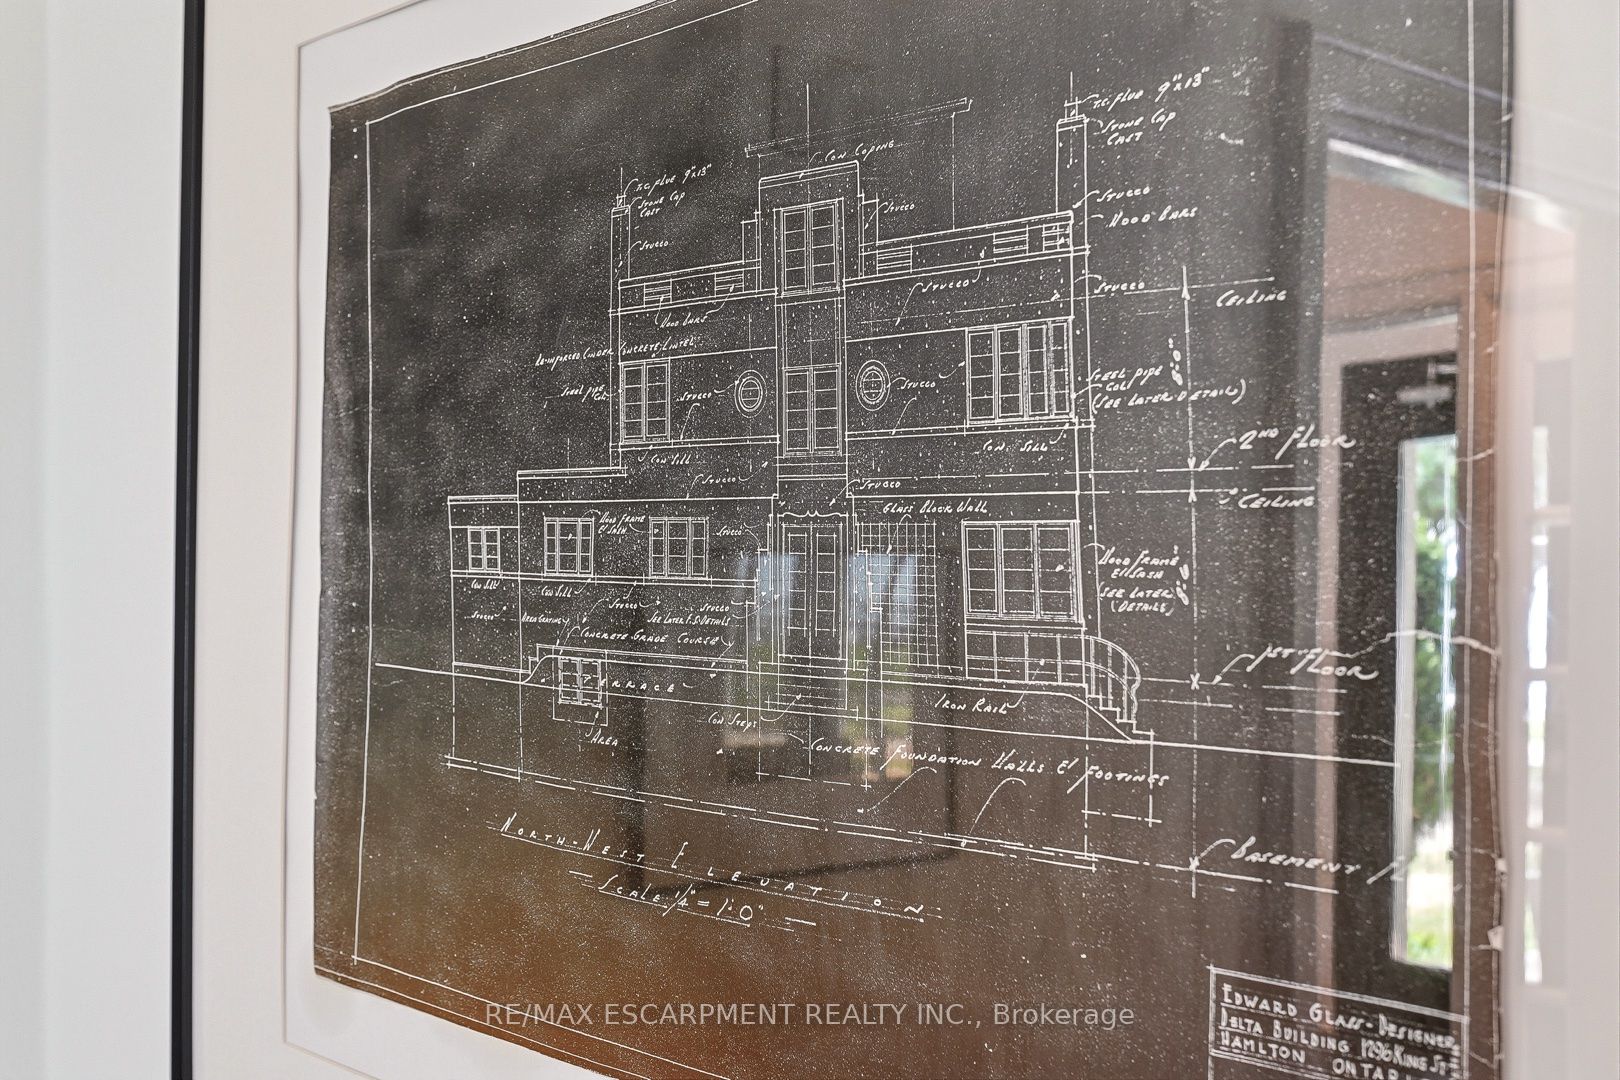 T.C. FLUE 9"x13"
STONE CAP
CAST
CON COPING
T.C. FLUE 9"x13"
STONE CAP
CAST
STUCCO
STUCCO
WOOD BARS
STUCCO
STUCCO
STUCCO
CEILING
WOOD BARS
RE-INFORCED CINDER CONCRETE LINTEL
STEEL PIPE
COL.
STUCCO
STUCCO
STEEL PIPE
COL
(SEE LATER DETAIL)
CON SILL
CON. SILL
2ND FLOOR
STUCCO
STUCCO
CEILING
GLASS BLOCK WALL
WOOD FRAME
& SASH
STUCCO
WOOD FRAME
& SASH
SEE LATER
(DETAILS)
CON SILL
CON SILL
STUCCO
STUCCO
STUCCO
AREA GRATING
SEE LATER F.S. DETAILS
CONCRETE GRADE COURSE
1ST FLOOR
TERRACE
IRON RAIL
CON STEPS
AREA
CONCRETE FOUNDATION WALLS & FOOTINGS
BASEMENT
NORTH-WEST ELEVATION
SCALE 1/4" = 1'-0"
EDWARD GLASS - DESIGNER
DELTA BUILDING 1296 KING ST E
HAMLTON ONTAR
RE/MAX ESCARPMENT REALTY INC., Brokerage